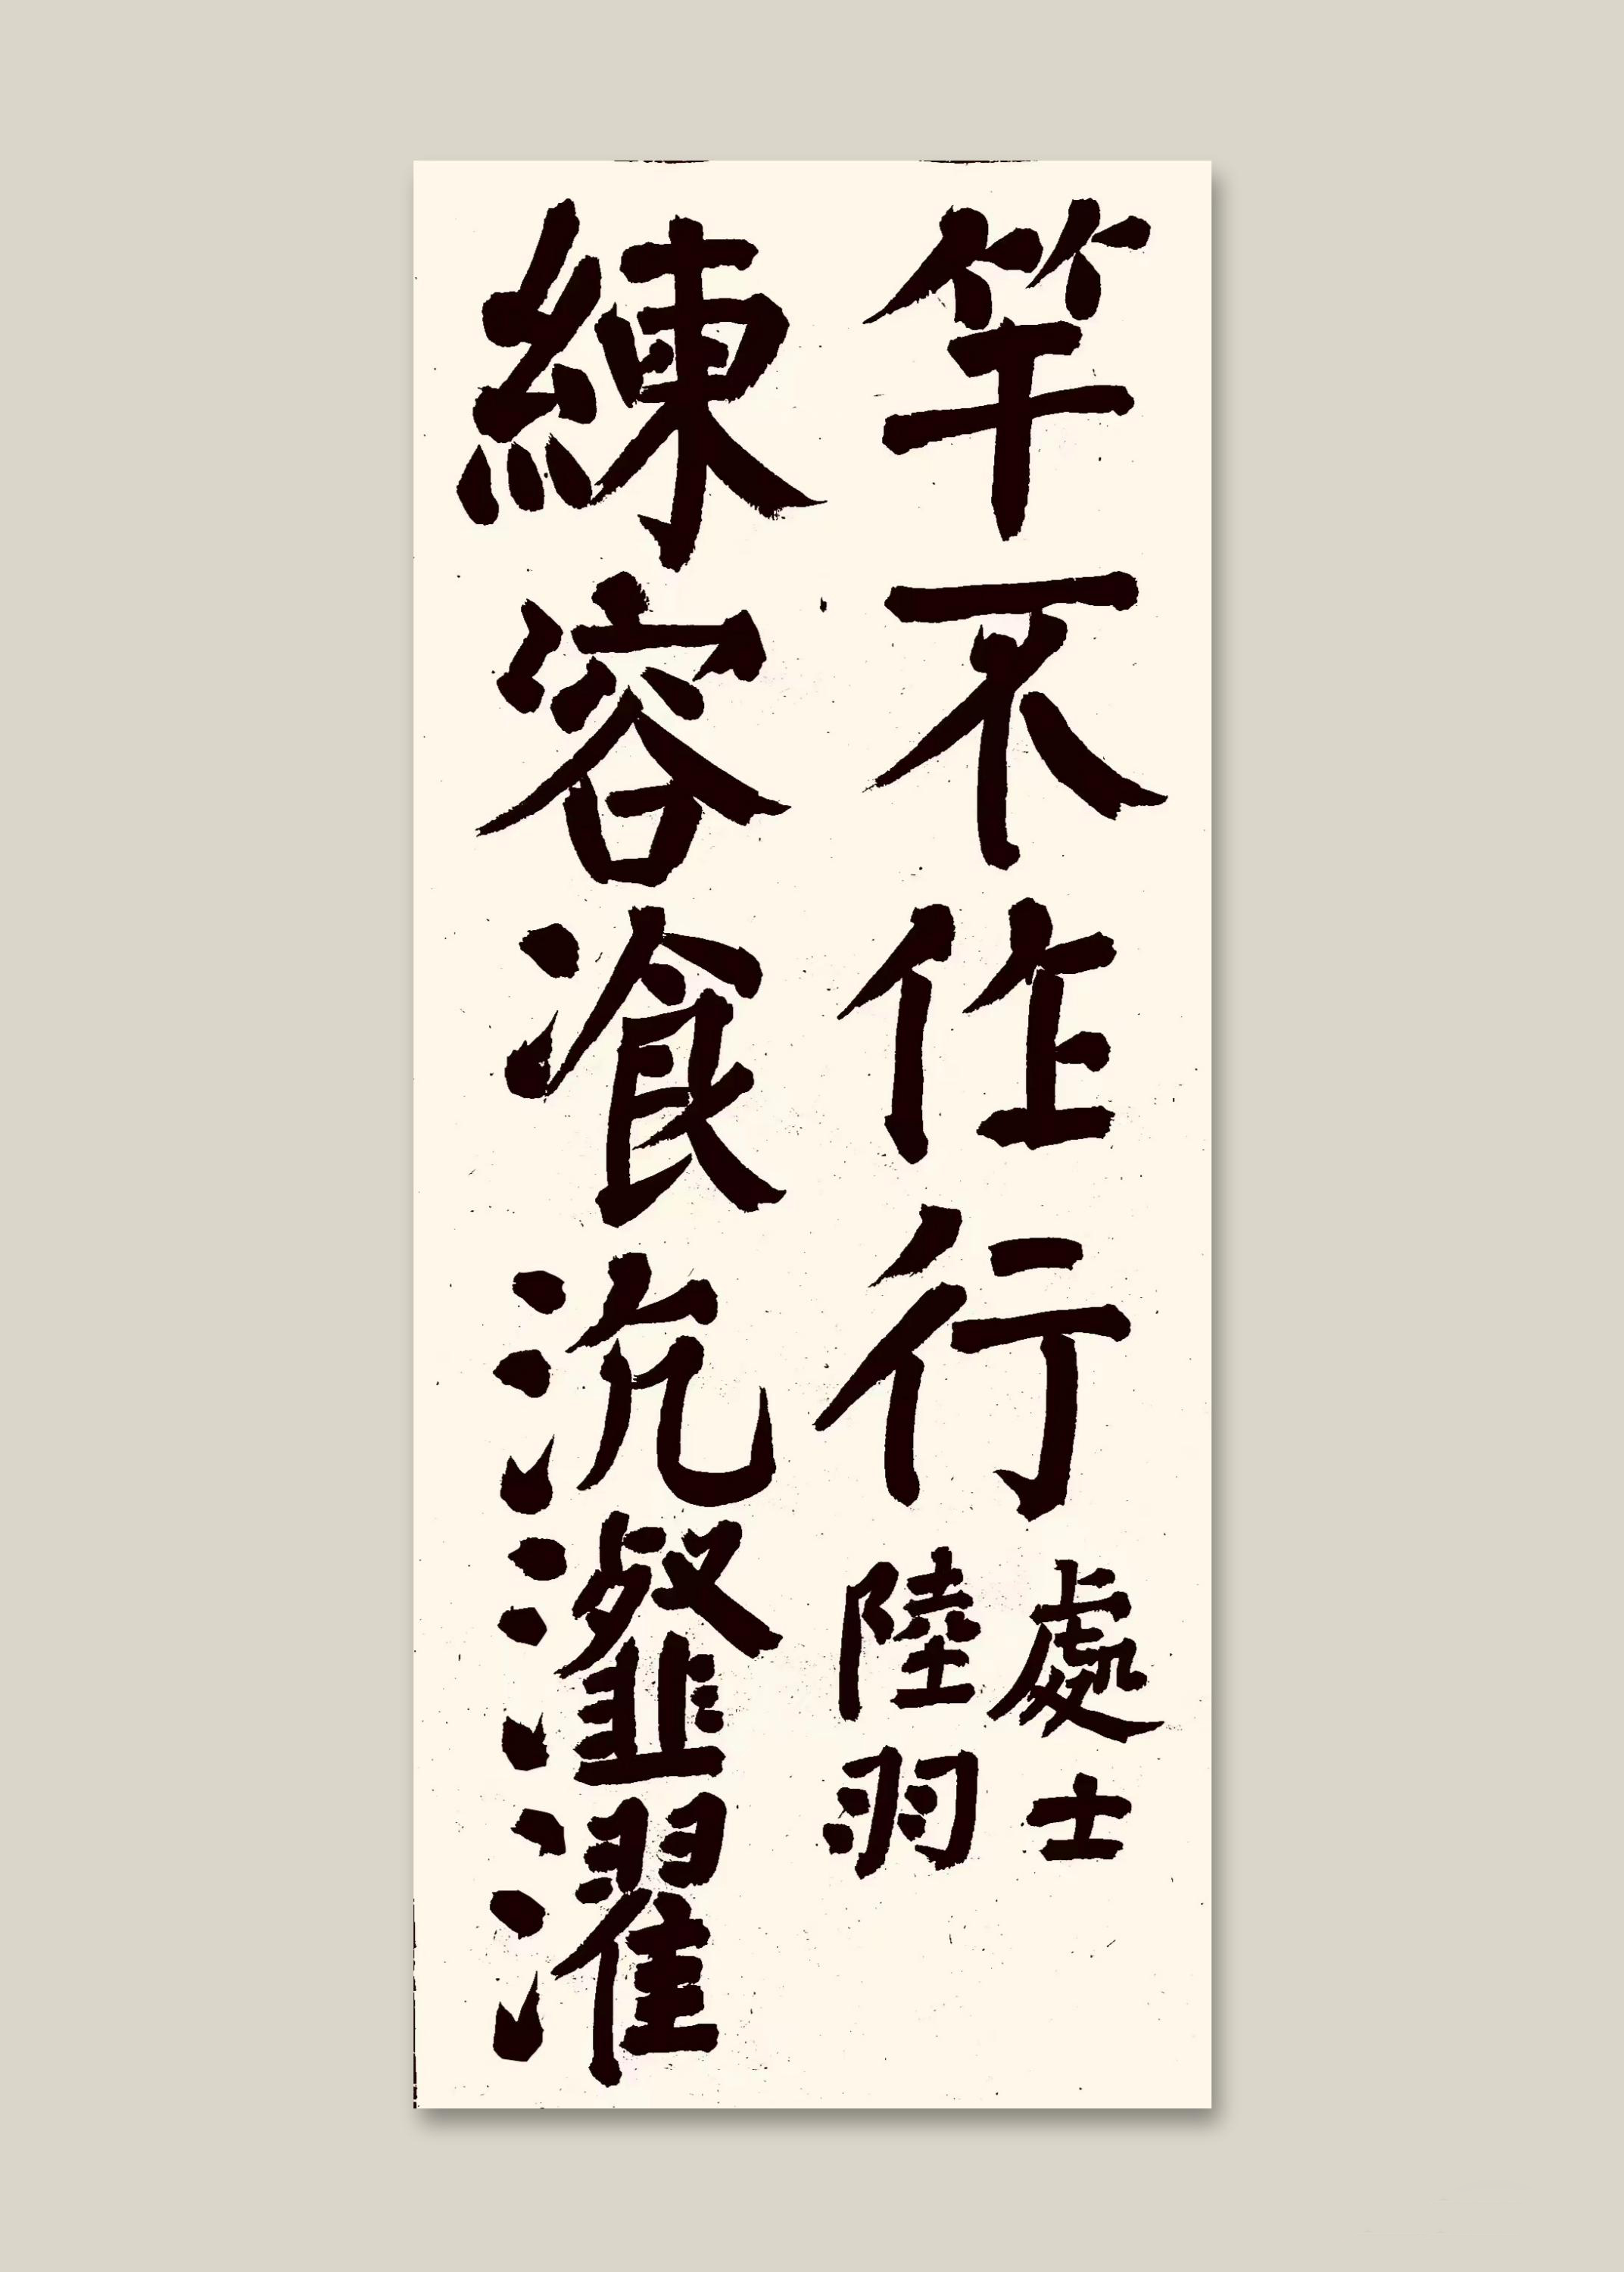 竿不作行
處士
陸羽
練容飡沆瀣濯